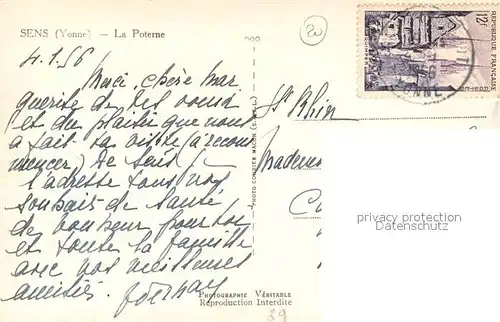 SENS (Yonne) — La Poterne
4.1.56
Merci, chère Mar
guerite de tes vœux
(et du plaisir que nous
a fait ta visite (à recom
mencer) De Sens je
t'adresse tous nos
souhaits de santé
de bonheur pour toi
et toute la famille
avec nos meilleures
amitiés.
PHOTO COMBIER MACON
PHOTOGRAPHIE VÉRITABLE
Reproduction Interdite
89
12F
REPUBLIQUE FRANÇAISE
YONNE
privacy protection
Datenschutz